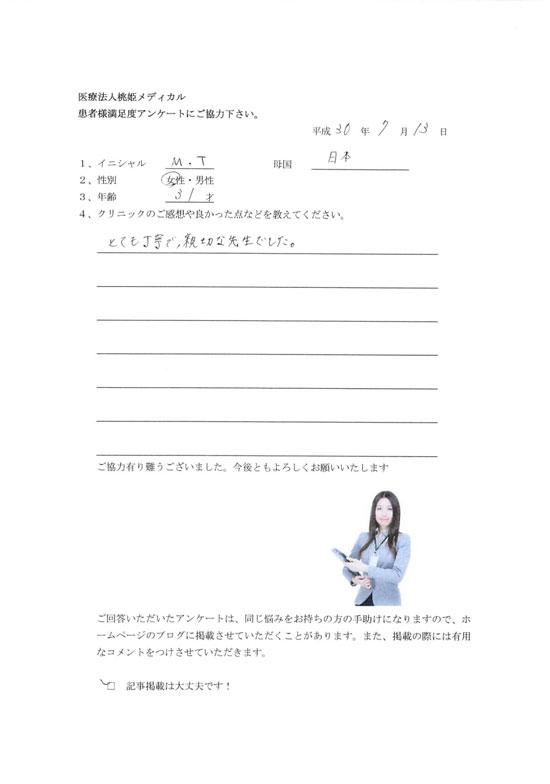 医療法人桃姫メディカル
患者様満足度アンケートにご協力下さい。
平成 30 年 7 月 13 日
1、イニシャル M.T 母国 日本
2、性別 女性・男性
3、年齢 31 才
4、クリニックのご感想や良かった点などを教えてください。
とても丁寧で、親切な先生でした。
ご協力有り難うございました。今後ともよろしくお願いいたします
ご回答いただいたアンケートは、同じ悩みをお持ちの方の手助けになりますので、ホ
ームページのブログに掲載させていただくことがあります。また、掲載の際には有用
なコメントをつけさせていただきます。
□ 記事掲載は大丈夫です！